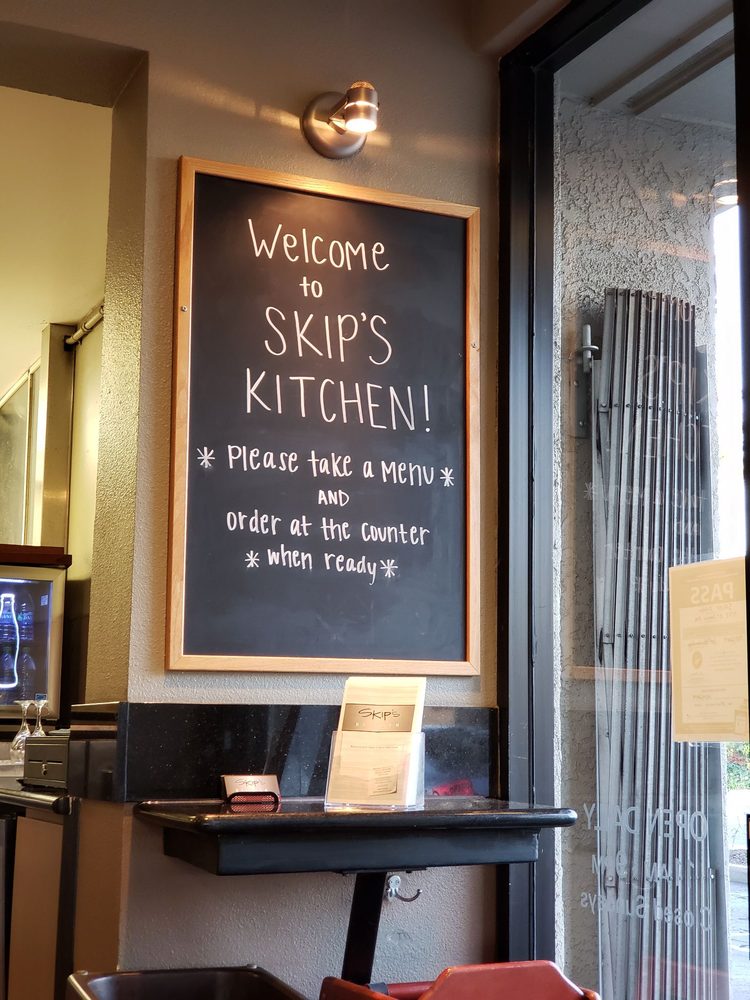 Welcome
to
SKIP'S
KITCHEN!
* Please take a Menu *
AND
order at the counter
* when ready *
Skip's
Skip's
PASS
OPEN DAILY
Closed Sundays